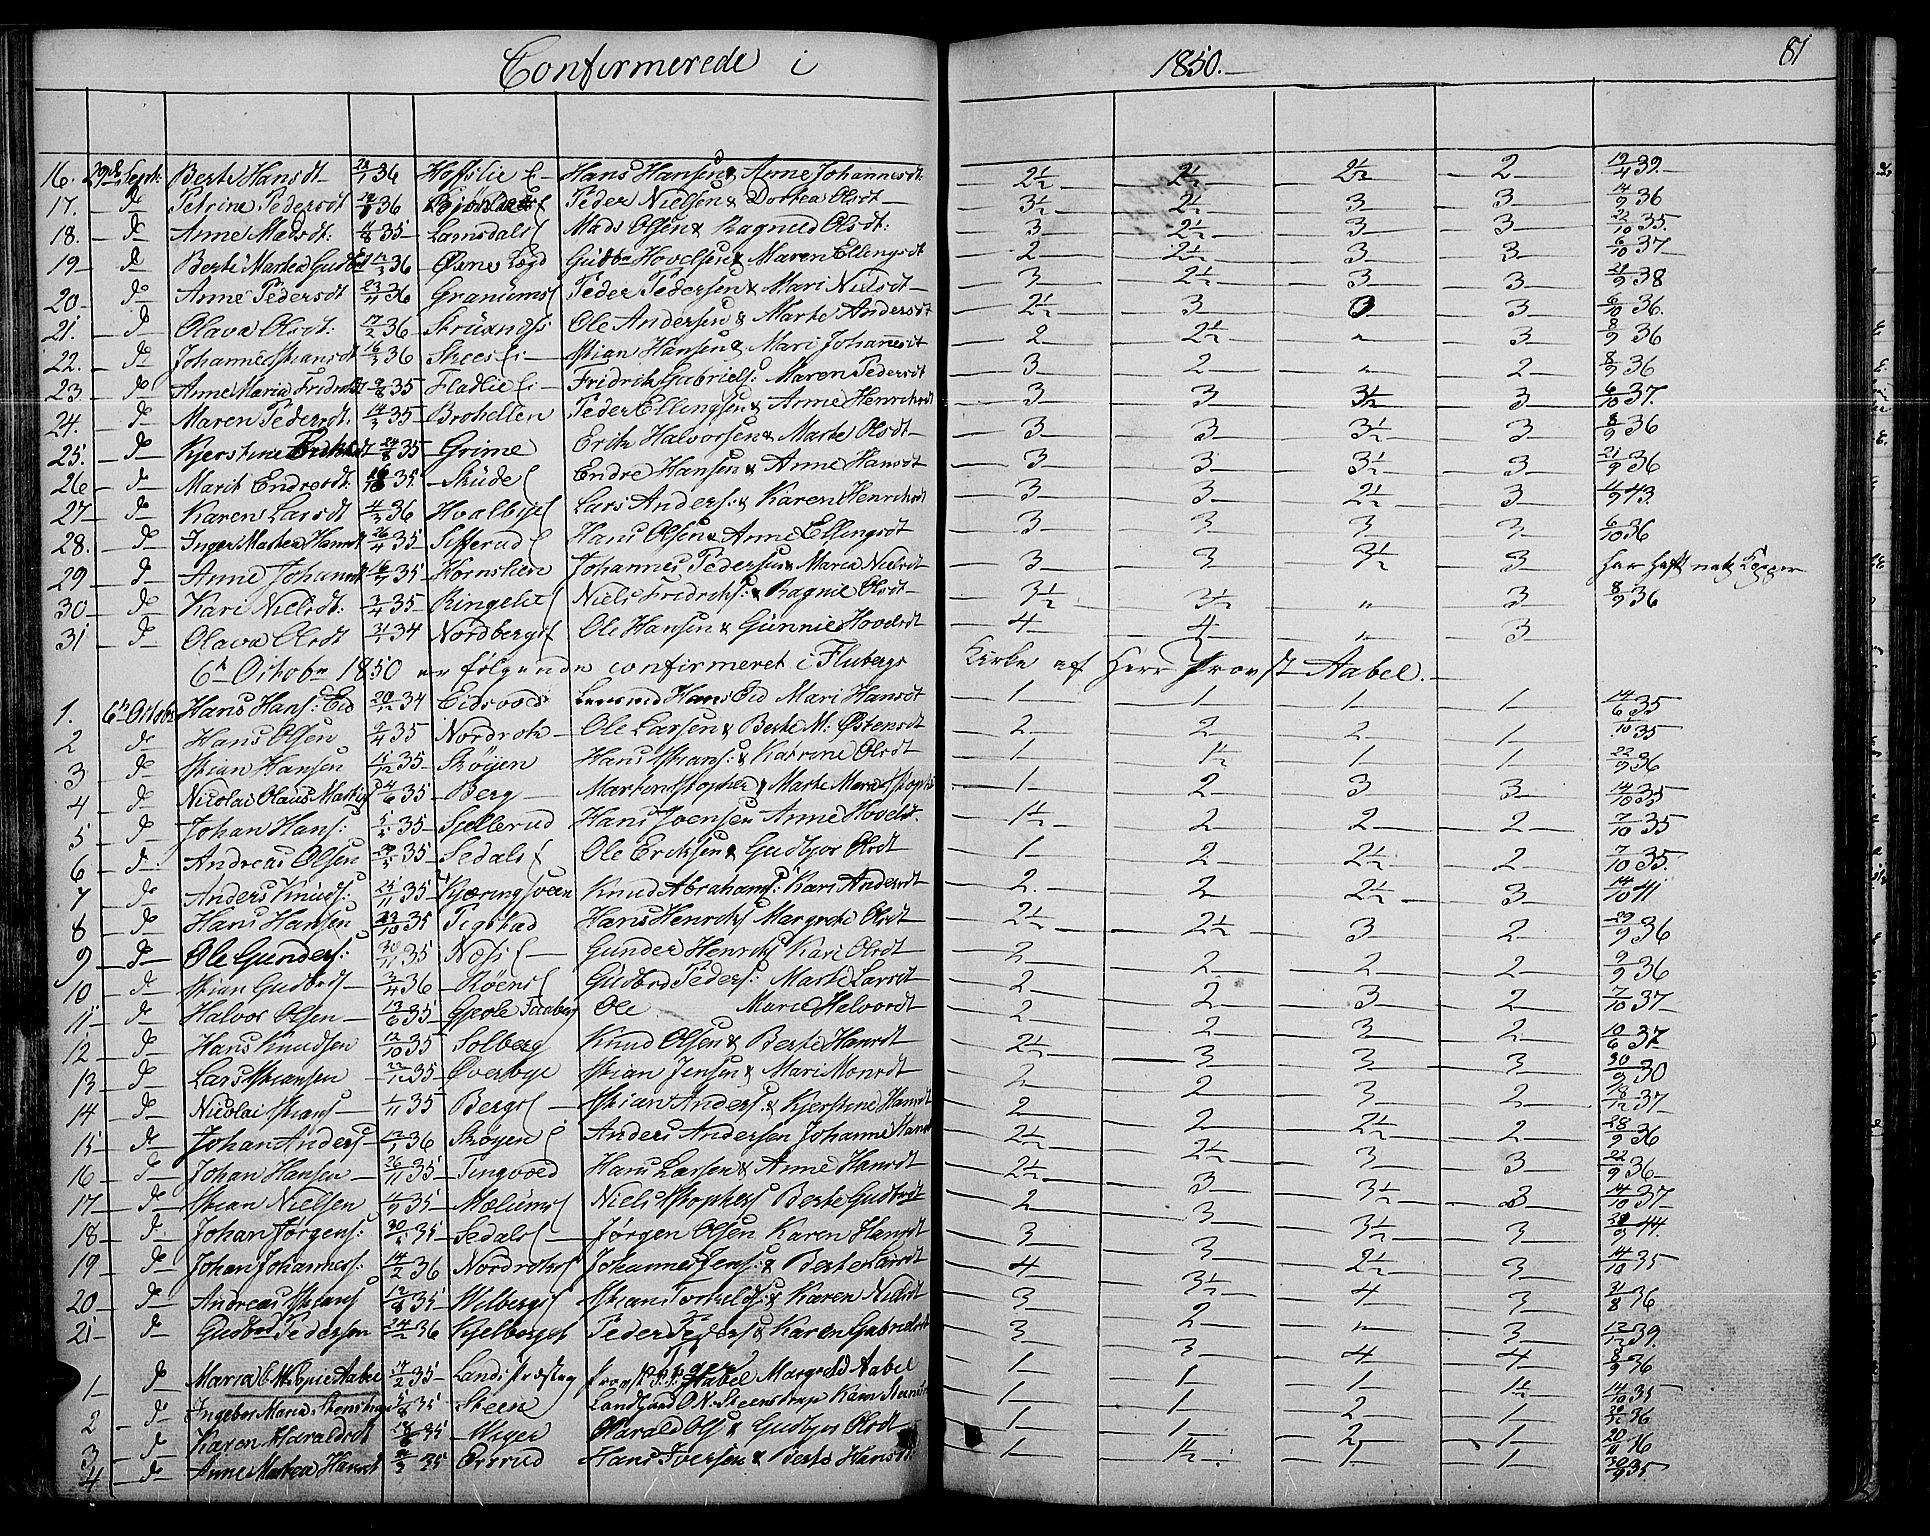 Confirmerede i 1850. 81
16. 29de Septr. Berte Hansdt 36 Hofslie E. Hans Hansen & Anne Johannesdt: 2½ 2½ 2½ 2 19/4 39.
17. do Petrine Pedersdt 36 Peder Nielsen & Dortea Olsdt 3½ 2½ 3 3 14/9 36
18. do Anne Madsdt: 35 Lansdals Mads Olsen & Ragnild Olsdt: 3 2½ 3 3 22/10 35.
19 do Berte Martea Gudbr 36 Øvre Lægd Gudbr Hovelsen & Maren Ellingsdt 2 2½ 3 3 6/10 37
20 do Anne Pedersdt 23/4 36 Granums Peder Pedersen & Mari Nielsdt 3 2½ 3 3 38
21. do Olava Olsdt: 17/2 36 Struxnes Ole Andersen & Marte Andersdt 2½ 3 3 3 6/10 36.
22. do Johanne Stiansdt 16/3 36 Skees E. Stian Hansen & Mari Johannesdt 2 2½ " 3 8/9 36
23 do Anne Maria Fridriksdt 35 Fladlie E. Fridrik Gabriels: Maren Pedersdt 3 2 " 2 8/9 36
24. do Maren Pedersdt. 14/3 35 Brohellen Peder Ellingsen & Anne Henriksdt 3 3 3½ 3 6/10 37.
25. do Kjerstine Eriksdt 24/8 35 Grime Erik Halvorsen & Marte Olsdt 3 3 3½ 3 8/9 36
26 do Marit Endresdt: 35 Skude Endre Hansen & Anne Hansdt 3 3 3½ 3 21/9 36
27 do Karen Larsdt 4/3 36 Hvalbye Lars Anders: & Karen Henriksdt 3 3 2½ 3 43.
28. do Inger Martea Hansdt 26/4 35 Sifferud Hans Olsen & Anne Ellingsdt 3 3 3 3 6/10 36
29 do Anne Johannesdt 35 Kornslien Johannes Pedersen & Maria Nielsdt 3 3 3½ 3 har haft nat: Kopper
30 do Kari Nielsdt: 3/4 35 Ringelie Niels Fridriks: & Ragnie Olsdt 3½ 3½ " 3 8/9 36
31 do Olava Olsdt 34 Nordbergs Ole Hansen & Gunnie Hovelsdt 4 4 " 3
6te October 1850 er følgende confirmeret i Flubergs Kirke af Herr Provst Aabel.
1. 6te Octobr Hans Hans: Eid 20/12 34 Eidsvold Hans Eid Mari Hansdt 1 1 1 1 14/6 35
2 do Hans Olsen 9/4 35 Nordroh Ole Larsen & Berte M: Østensdt 2 2 2 1 1/10 35
3 do Stian Hansen 35 Skøyen Hans Stians: & Katrine Olsdt 1 1½ 1 1 22/9 36
4 do Nicolai Olaus Martins 4/6 35 Berg Martin Stopher & Marte Maria Stophs 1 2 3 3 14/10 35
5 do Johan Hans: 35 Sjellerud Hans Joensen Anne Hovelsdt. 1½ 2 2 2 7/10 35
6 do Andreas Olsen 35 Sedals Ole Eriksen & Gudbjor Olsdt 1 2 2½ 2 7/10 35.
7 do Anders Knuds: 25/11 35 Kjæringsveen Knud Abrahams: Kari Andersdt 2. 2 2½ 3 14/10 41
8 do Hans Hansen 29/10 35 Tigstad Hans Henriks Margrete Olsdt 2½ 2½ 3 2 29/9 36
9 do Ole Gunders: 30/11 35 Næs Gunder Henriks Kari Olsdt 2 2 2 2 9/9 36
10 do Stian Gudbrds 3/4 36 Røens Gudbrd Peders: Marte Larsdt 2 2 3 2 7/10 37
11 do Halvor Olsen 13/6 35 Gjeole Faaberg Ole Marie Halvorsdt 2 2 3 2 10/6 37
12 do Hans Knudsen 12/10 35 Solberg Knud Olsen & Berte Hansdt 2½ 3 3 3 30/9 30
13 do Lars Stiansen 35 Øverbye Stian Jensen & Mari Monsdt 2 2 3 2 18/12 37
14 do Nicolai Stians 1/11 35 Bergs Stian Anders: & Kjerstine Hansdt 2 2 2½ 2 28/9 36
15 do Johan Anders 13/1 36 Skøyen Anders Andersen Johanne Hansdt 2½ 2½ 3 3 22/9 36
16 do Johan Hansen 26/11 35 Tingvold Hans Larsen & Anne Hansdt 2½ 3 3½ 3 14/10 37
17 do Stian Nielsen 35 Mælums Niels Stophers Berte Gudbrdt 2 3 3½ 3 44.
18 do Johan Jørgens: 35 Sedals Jørgen Olsen Karen Hansdt 3 3 2½ 3 14/10 35
19 do Johan Johannes: 14/2 36 Nordrohs Johannes Jens: & Berte Larsdt 4 3½ 4 3 31/8 36
20 do Andreas Stians 35 Velbergs Stian Torkelds: & Karen Nielsdt 3 2 " 3 12/12 39.
21 do Gudbrd Pedersen 24/2 36 Kjelberges Peder Peders & Karen Gabrielsdt 3 3 4 4 8/9 36
1 do Maria E. W. Sopie Aabel 14/2 35 Lands Præsteg Provst P. P. Aabel Margrete Aabel 1 1 1 1½ 14/10 35
2 do Ingebor Maria Stenstrup 5/8 35 Steen Landhand O. N. Steenstrup Karen 1 1 2 1 36
3 do Karen Haraldsdt 35 Harald Ols & Gudbjor Olsdt 1 1 2 1 20/11 36
4 do Anne Martea Hansdt 35 Ersrud Hans Iversen & Berte Hansdt 1 1½ 1 1 30/9 35